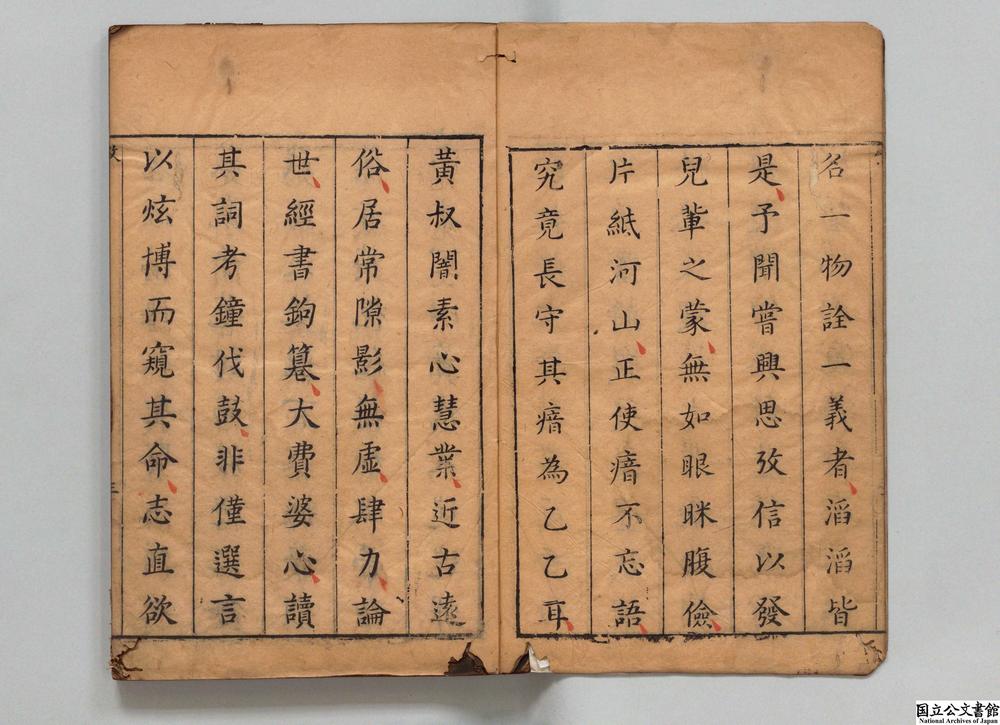 名一物詮一義者滔滔皆
是予聞嘗興思攷信以發
兒輩之蒙無如眼眯腹儉
片紙河山正使瘖不忘語
究竟長守其瘖為乙乙耳
黃叔闇素心慧業近古遠
俗居常隙影無虛肆力論
世經書鉤纂大費婆心讀
其詞考鐘伐鼓非僅選言
以炫博而窺其命志直欲
国立公文書館
National Archives of Japan